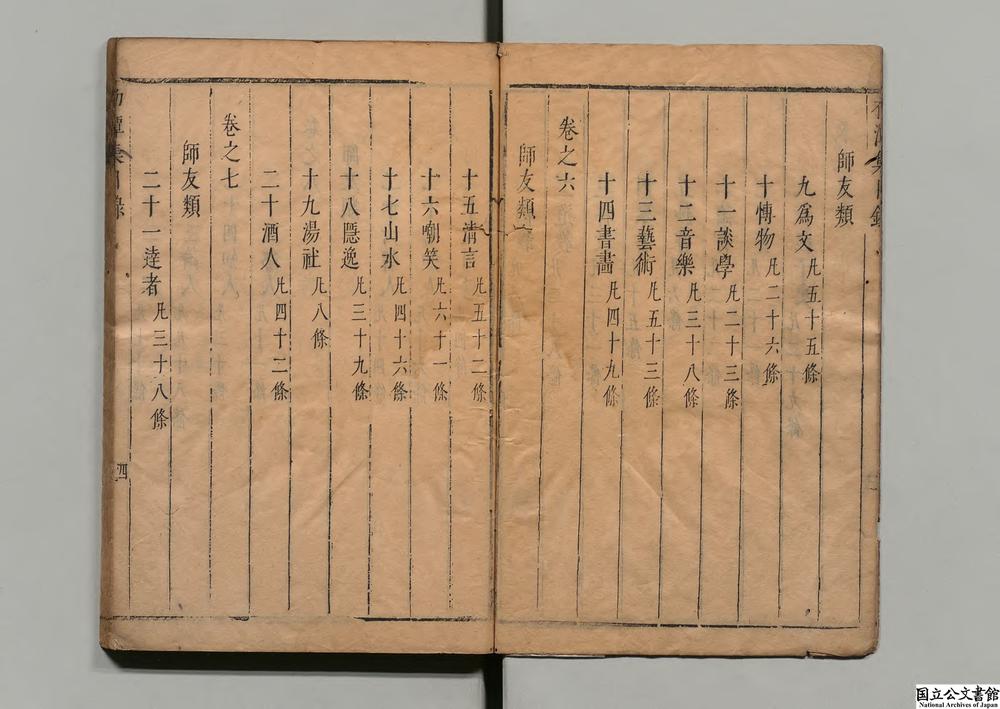 師友類
九爲文 凡五十五條
十慱物 凡二十六條
十一談學 凡二十三條
十二音樂 凡三十八條
十三藝術 凡五十三條
十四書畵 凡四十九條
卷之六
師友類
十五清言 凡五十二條
十六嘲笑 凡六十一條
十七山水 凡四十六條
十八隱逸 凡三十九條
十九湯社 凡八條
二十酒人 凡四十二條
卷之七
師友類
二十一達者 凡三十八條
四
国立公文書館
National Archives of Japan